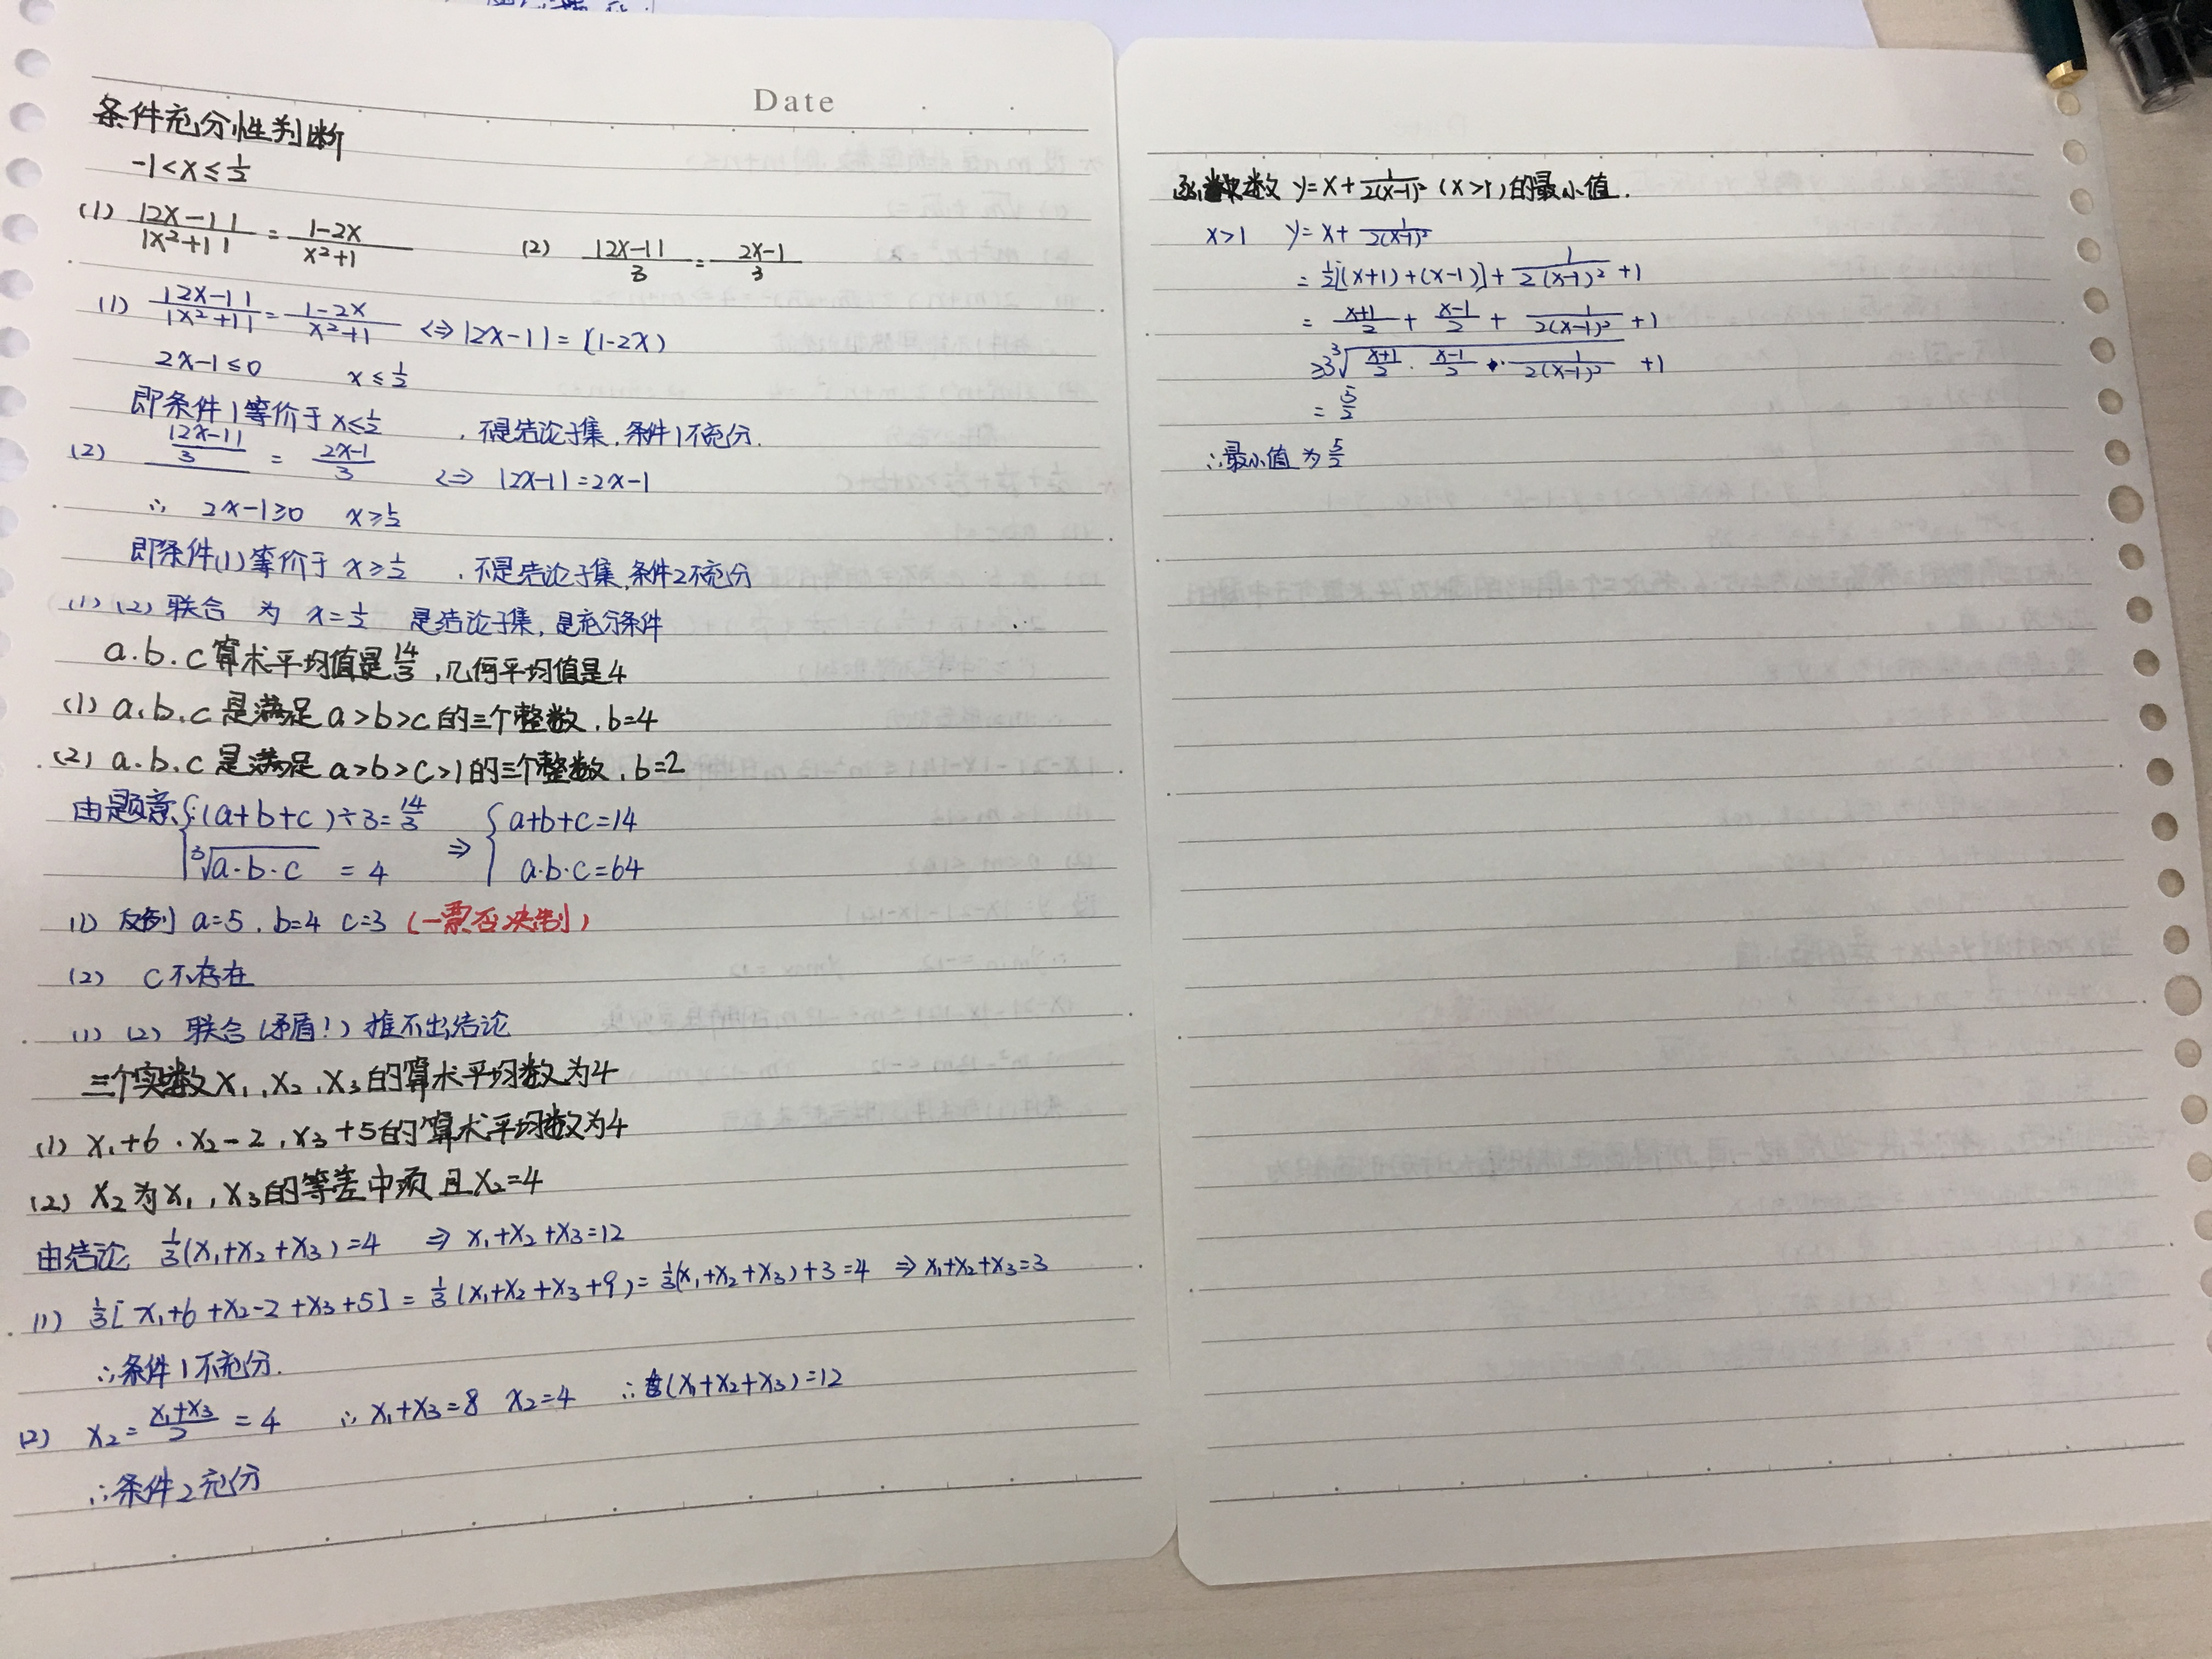 Date
条件充分性判断
-1<x≤1/2
(1) |2x-1|/|x²+1| = (1-2x)/(x²+1) (2) |2x-1|/3 = (2x-1)/3
(1) |2x-1|/|x²+1| = (1-2x)/(x²+1) <=> |2x-1| = (1-2x)
2x-1≤0 x≤1/2
即条件1等价于x≤1/2 , 不是结论子集, 条件1不充分.
(2) |2x-1|/3 = (2x-1)/3 <=> |2x-1|=2x-1
∴ 2x-1≥0 x≥1/2
即条件(1)等价于 x≥1/2 , 不是结论子集,条件2不充分
(1) (2) 联合 为 x=1/2 是结论子集, 是充分条件
a.b.c算术平均值是14/3 , 几何平均值是4
(1) a.b.c是满足a>b>c的三个整数, b=4
(2) a.b.c是满足a>b>c>1的三个整数, b=2
由题意{(a+b+c)÷3=14/3 => {a+b+c=14
³√(a·b·c) = 4 a·b·c=64
(1) 反例 a=5 . b=4 c=3 (一票否决制)
(2) c不存在
(1) (2) 联合(矛盾!) 推不出结论
三个实数x₁,x₂,x₃的算术平均数为4
(1) x₁+6 . x₂-2 , x₃+5的算术平均数为4
(2) x₂为x₁,x₃的等差中项 且x₂=4
由结论 1/3(x₁+x₂+x₃)=4 => x₁+x₂+x₃=12
(1) 1/3[x₁+6+x₂-2+x₃+5] = 1/3(x₁+x₂+x₃+9) = 1/3(x₁+x₂+x₃)+3=4 => x₁+x₂+x₃=3
∴条件1不充分.
(2) x₂=(x₁+x₃)/2 = 4 ∴ x₁+x₃=8 x₂=4 ∴(x₁+x₂+x₃)=12
∴条件2充分
数 y=x+1/(2(x-1)²) (x>1)的最小值.
x>1 y=x+1/(2(x-1)²)
= 1/2[(x+1)+(x-1)]+1/(2(x-1)²)+1
= (x+1)/2 + (x-1)/2 + 1/(2(x-1)²) +1
≥3³√((x+1)/2 · (x-1)/2 · 1/(2(x-1)²)) +1
= 5/2
∴最小值为5/2